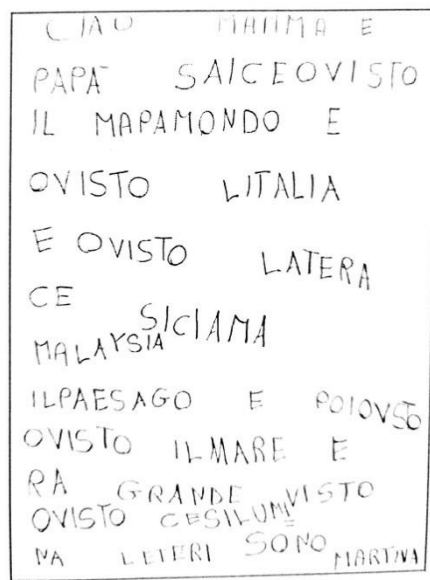 CIAO MAMMA E
PAPA SAICEOVISTO
IL MAPAMONDO E
OVISTO LITALIA
E OVISTO LATERA
CE SICIAMA
MALAYSIA
ILPAESAGO E POIOVSTO
OVISTO ILMARE E
RA GRANDE VISTO
OVISTO CESILUMI
NA LETERI SONO MARTINA